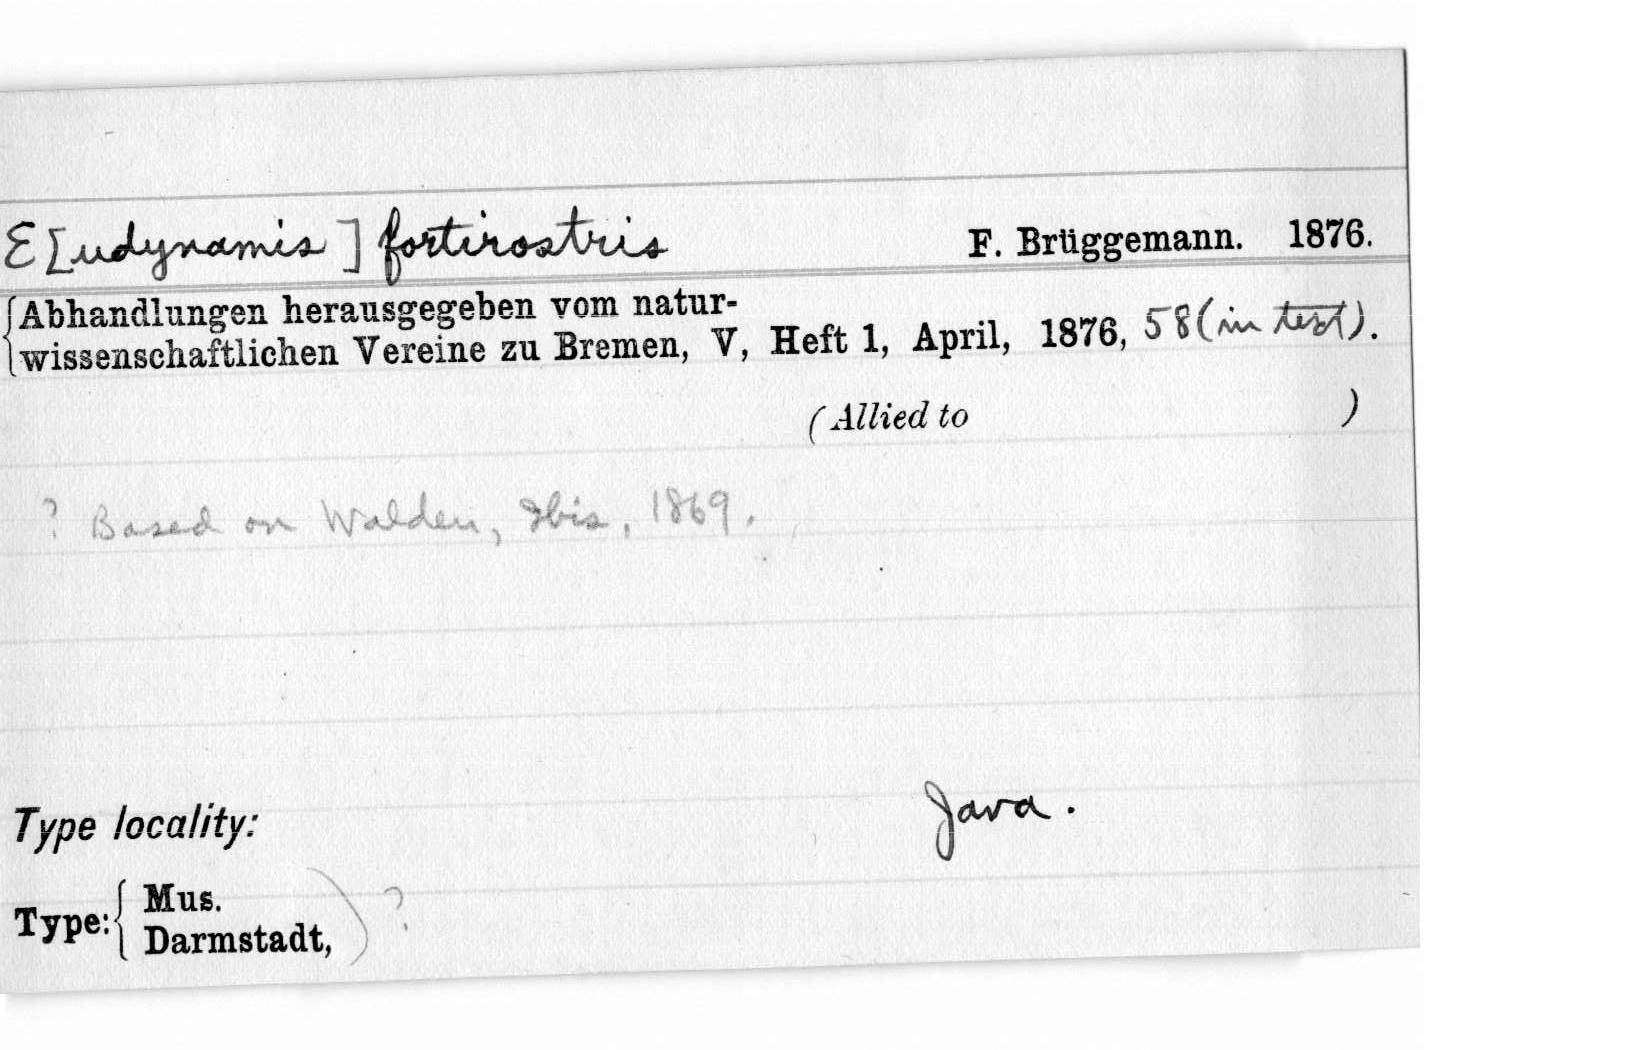 E[udynamis] fortirostris F. Brüggemann. 1876.
Abhandlungen herausgegeben vom natur-
wissenschaftlichen Vereine zu Bremen, V, Heft 1, April, 1876, 58 (in text).
(Allied to )
? Based on Walden, Ibis, 1869.
Type locality: Java.
Type: { Mus.
Darmstadt, ) ?